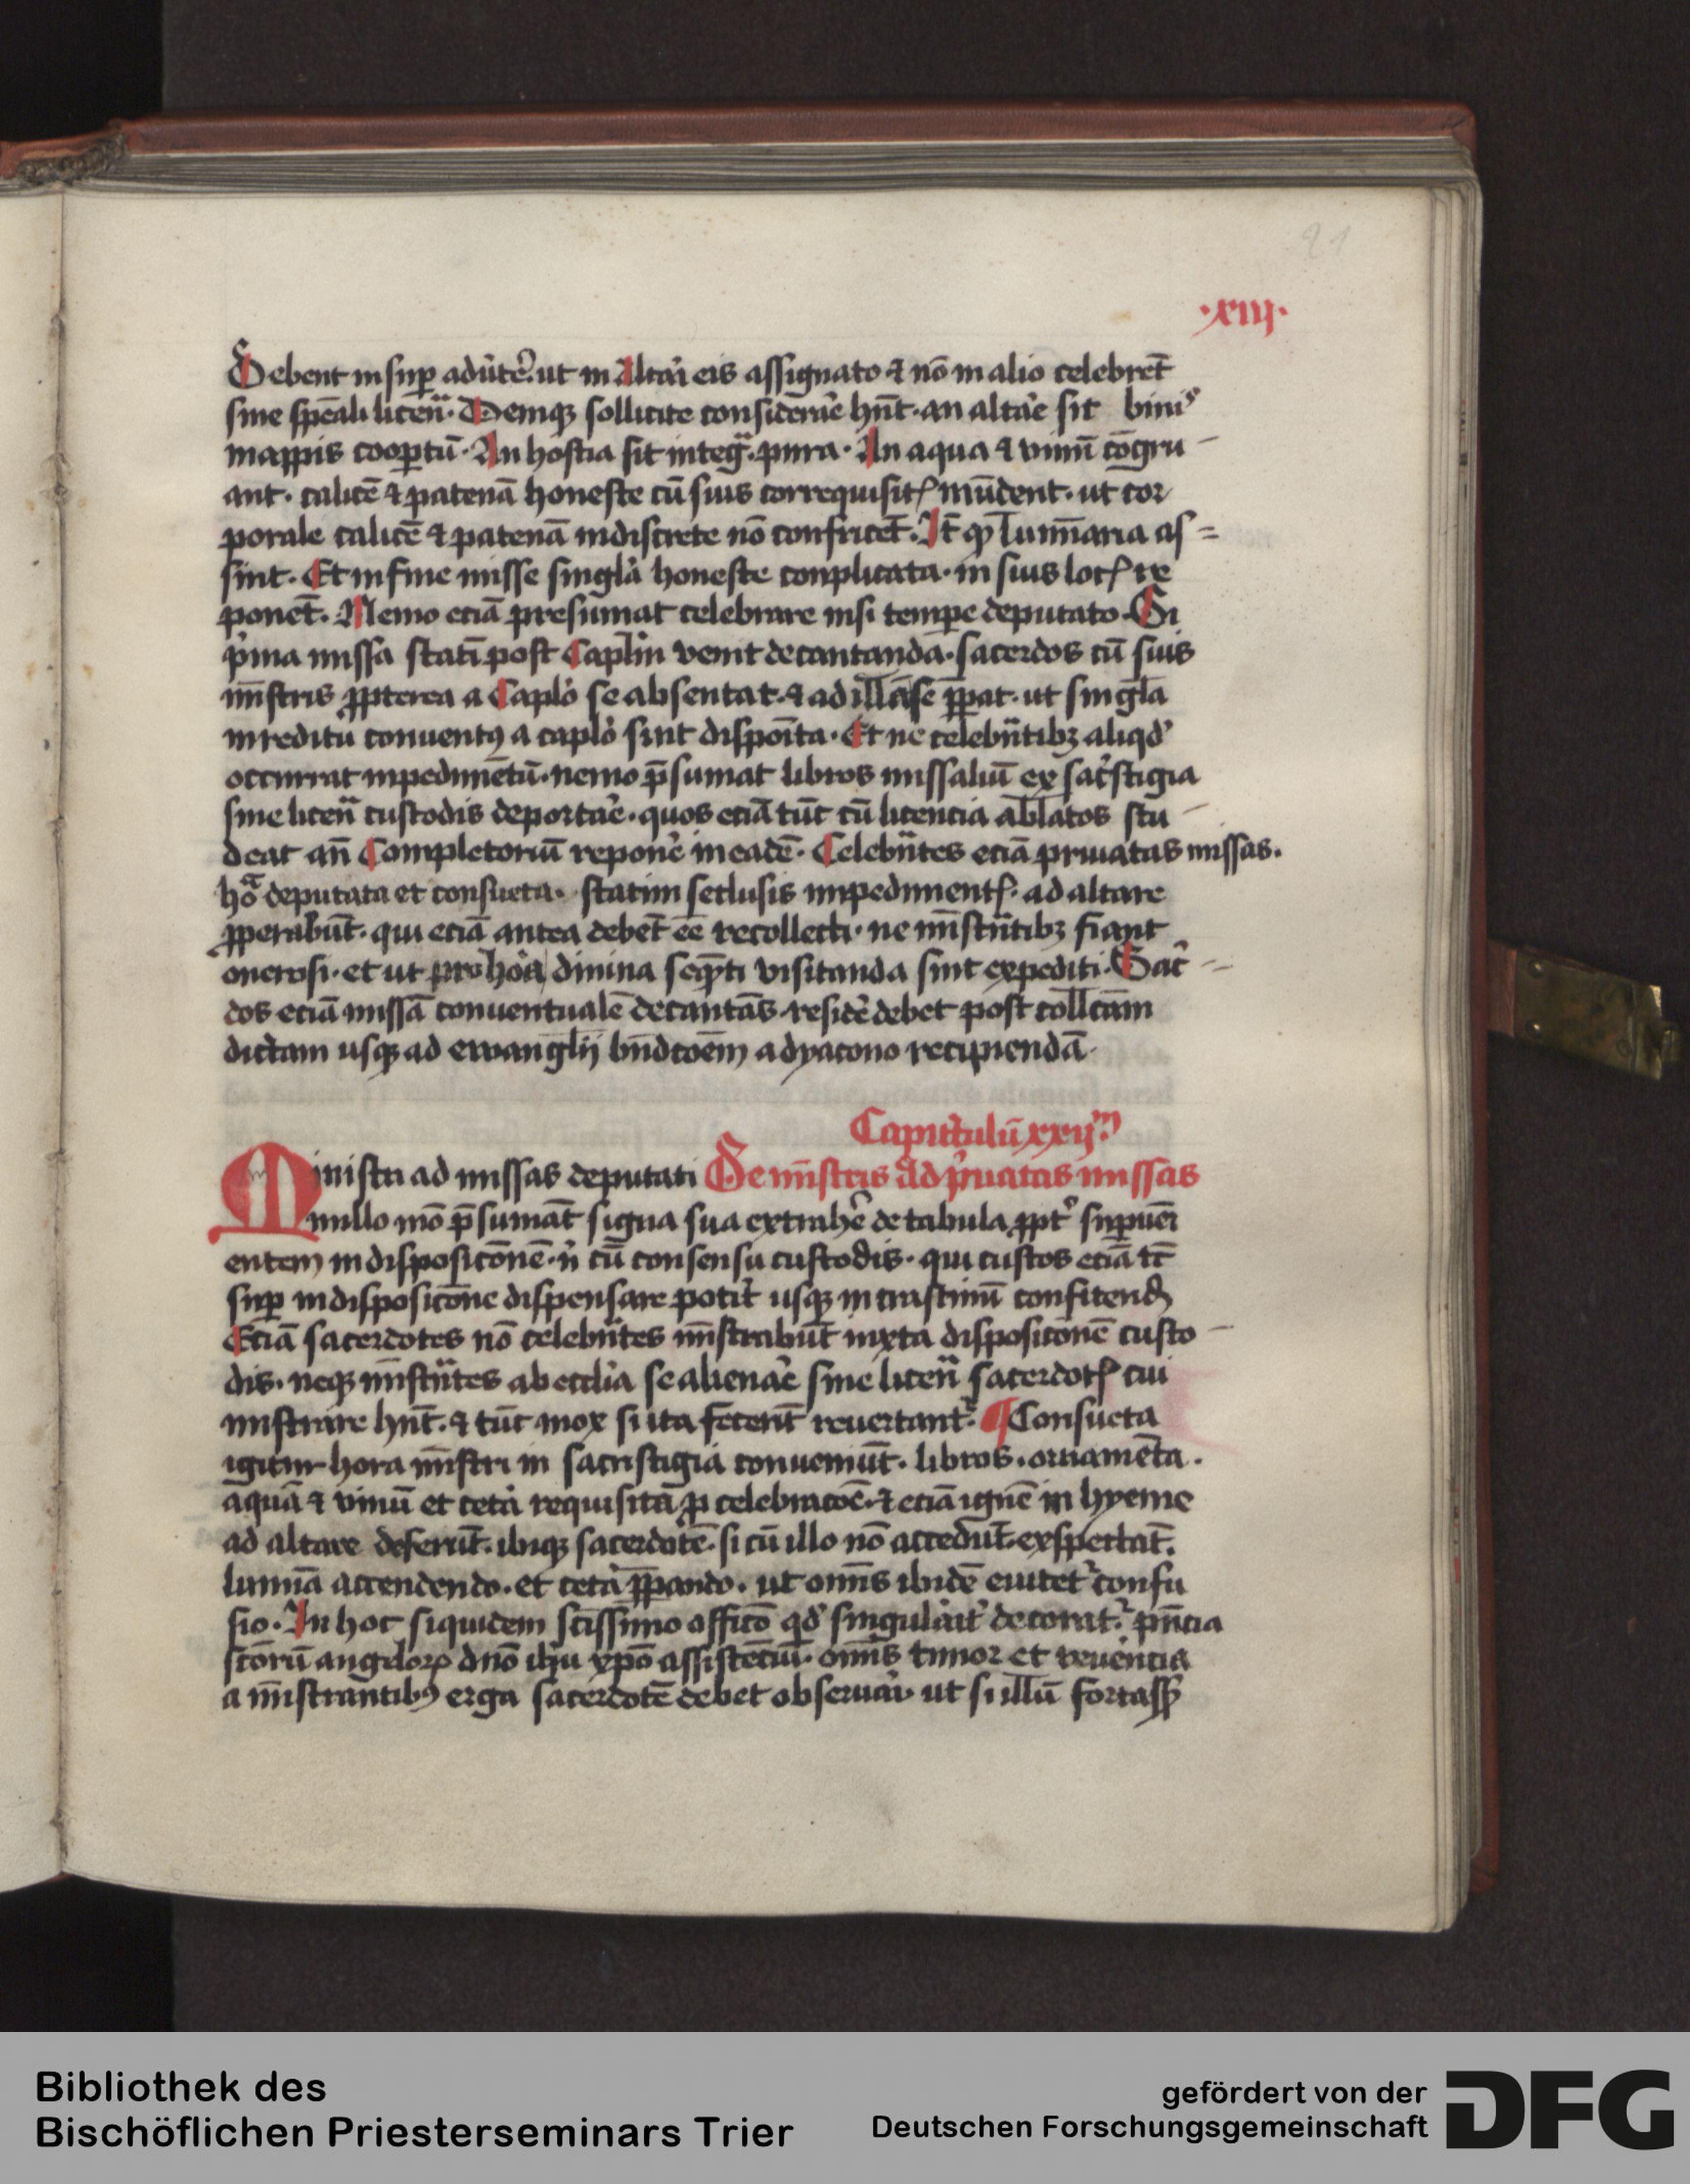 21
·xiij·
Debent insup̄ adũtẽ. ut in Altãi eis assignato ⁊ nō in alio celebrēt
sine sp̄eali licen̄. Demqꝫ sollicite consid̄erãe hn̄t. an altãe sit binis
mappis coop̄tū. An hostia sit integ̃. pura. An aqua ⁊ vinū cōgru
ant. calicē ⁊ patenā honeste cū suis correquisitꝭ mūdent. ut cor
porale calicē ⁊ patenā indiscrete nō confricēt. It̄ ꝙ lumi̅aria as=
sint. Et in fine misse singlã honeste conplicata. in suis locꝭ re
ponēt. Nemo eciā presumat celebrare nisi tempe deputato. Si
p̃ma missa statī post Caplm̄ venit decantanda. sacerdos cū suis
mi̅stris ꝓpterea a Caplõ se absentat. ⁊ ad illā se p̄pat. ut singla
in reditu conuentꝰ a caplõ sint dispoīta. Et ne celebr̃tibꝫ aliqd̃
occurrat inpedimētū. nemo p̄sumat libros missaliū ex sac̃stigia
sine licen̄ custodis deportãe. quos eciā tūc cū licencia ablatos stu
deat an̄ Completoriū reponẽ in eadē. Celebr̃tes eciā priuatas missas.
ho̊ deputata et consueta. statim seclusis impedimentꝭ. ad altare
ꝓperabūt. qui eciā antea debēt eē recollecti. ne mi̅str̃tibꝫ fiant
onerosi. et ut pro hõa diuina seq̄ti visitanda sint expediti. Sac̃=
dos eciā missā conuentualē decantās residẽ debet post collcām
dictam usqꝫ ad ewanglij bn̄dcoēm a dyacono recipiendā.
Capitulū xxijm̄
Ministri ad missas deputati De mi̅stris Ad p̃uatas missas
nullo mō p̄sumāt signa sua extrahẽ de tabula ꝓpt̃ sup̄ueī
entem indisposicōnē. n̄ cū consensu custodis. qui custos eciā tc̄
sup̄ indisposicōne dispensare potit̃ usqꝫ in crastinū confitend̄
Eciā sacerdotes nō celebr̃tes mi̅strabūt iuxta disposicōnē custo
dis. neqꝫ mi̅str̃tes ab ecclĩa se alienãe sine licen̄ sacerdotꝭ cui
mi̅strare hn̄t. ⁊ tūc mox si ita fecerīt reuertant̃. ¶ Consueta
igitur hora mi̅stri in sacristigia conueniūt. libros. ornamēta.
aquā ⁊ vinū et cetã requisita ꝓ celebracōe. ⁊ eciā ignē in hyeme
ad altare deferūt. ibiqꝫ sacerdotē. si cū illo nō accedūt. exspectāt.
lumīa accendendo. et cetã p̄pando. ut omīs ibidē euitet̃ confu
sio. In hoc siquidem scīssimo officō qd̃ singulãit̃ decorat̃. pn̄cia
scōrū angelorꝝ dnō ihu xpō assistēciū. omīs timor et reuẽncia
a mi̅strantibꝰ erga sacerdotē debet obseruãi. ut si illū fortassꝭ
Bibliothek des
Bischöflichen Priesterseminars Trier
gefördert von der
Deutschen Forschungsgemeinschaft
DFG